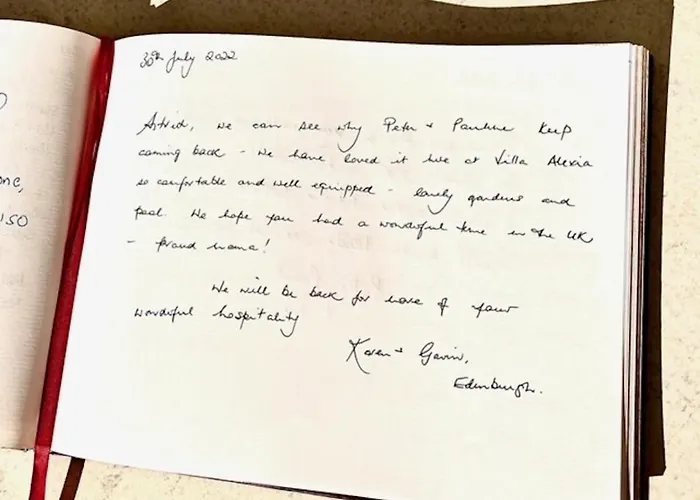 one,
also
30th July 2022
Astrid, we can see why Peter + Pauline keep
coming back - we have loved it here at Villa Alexia
so comfortable and well equipped - lovely gardens and
pool. We hope you had a wonderful time in the UK
- proud mama!
We will be back for more of your
wonderful hospitality
Karen + Gavin,
Edinburgh.